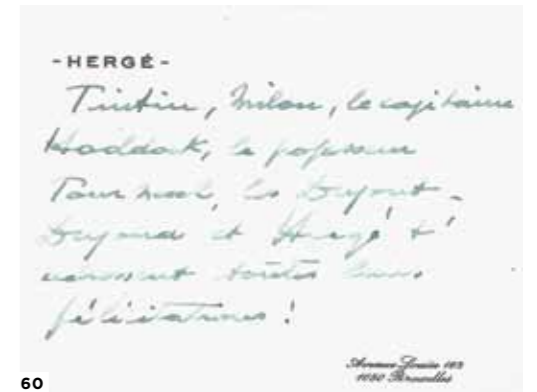 -HERGÉ-
Tintin, Milou, le capitaine
Haddock, le professeur
Tournesol, les Dupont-
Dupond et Hergé t'
adressent toutes leurs
félicitations !
Avenue Louise 162
1050 Bruxelles
60